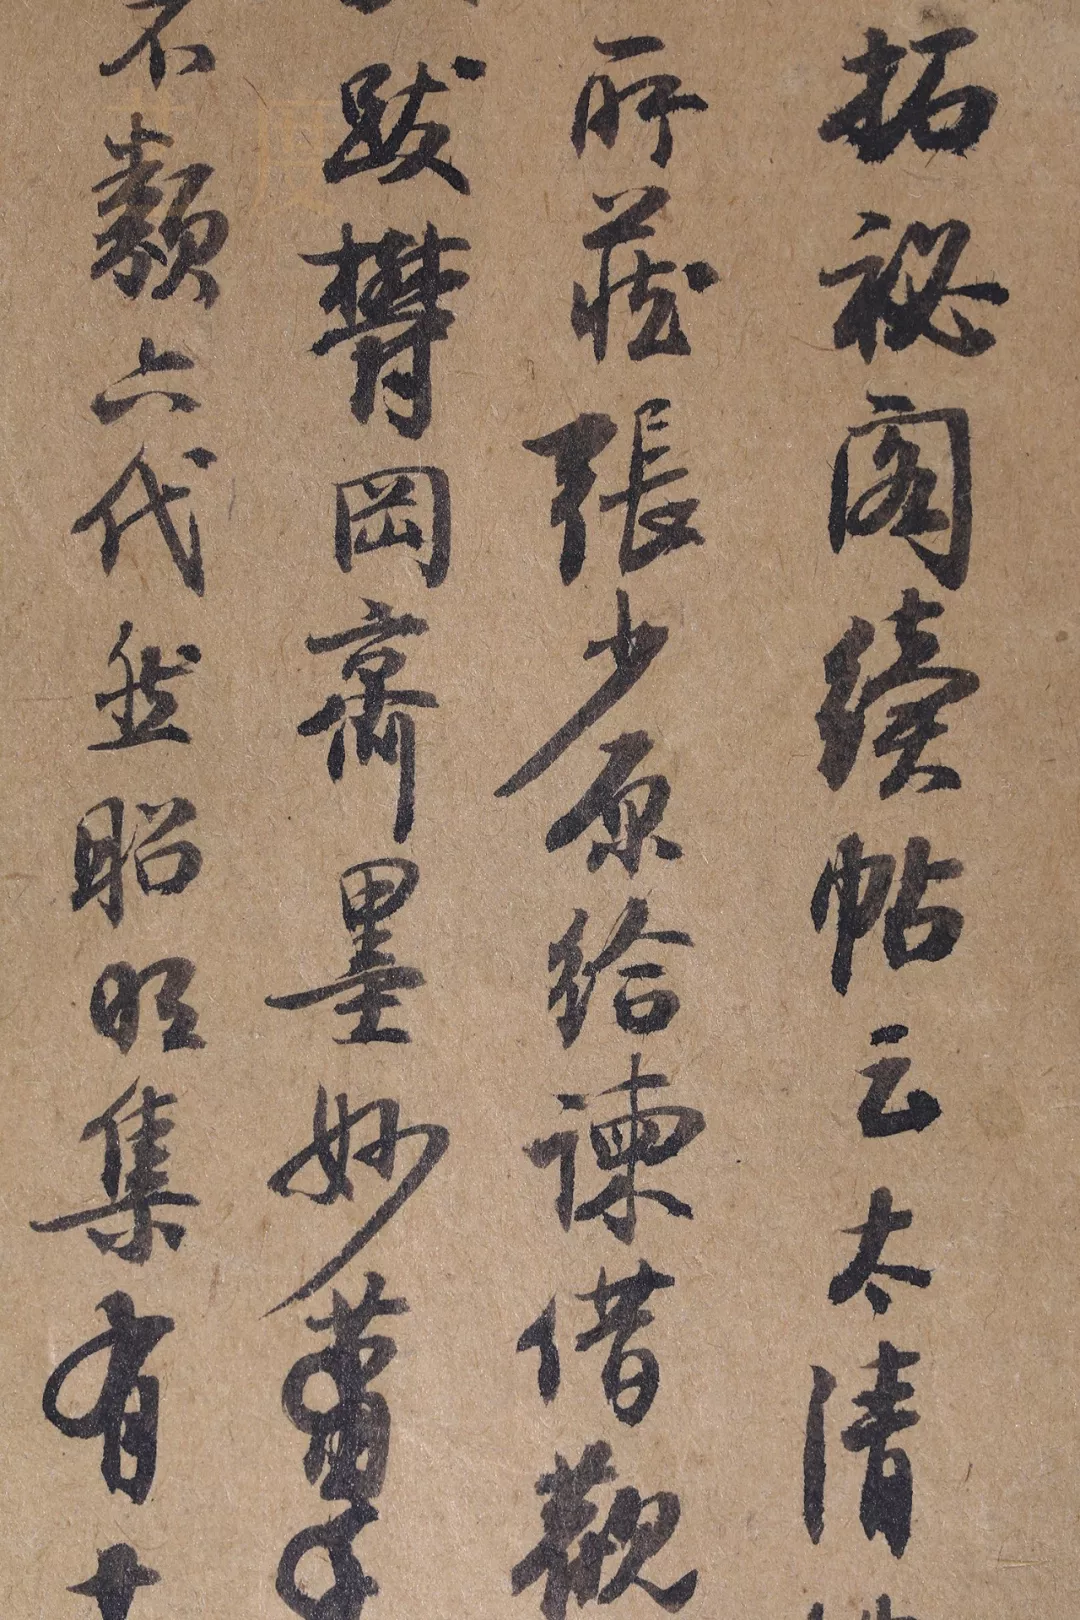 拓祕閣續帖云太清
所藏張少原給諫借觀
跋欝岡齋墨妙
不類六代然昭明集有十